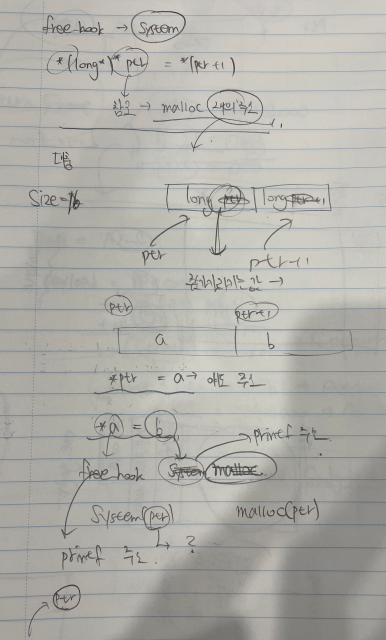 free-hook → System
*(long*)*ptr = *(ptr+1)
참조 → malloc 거의 주소
Size=16 long ptr long ptr+1
ptr ptr+1
ptr ptr+1
a b
*ptr = a → 얘도 주소
*a = b → printf 주소.
free-hook System malloc
System(ptr) malloc(ptr)
printf 주소. ?
ptr